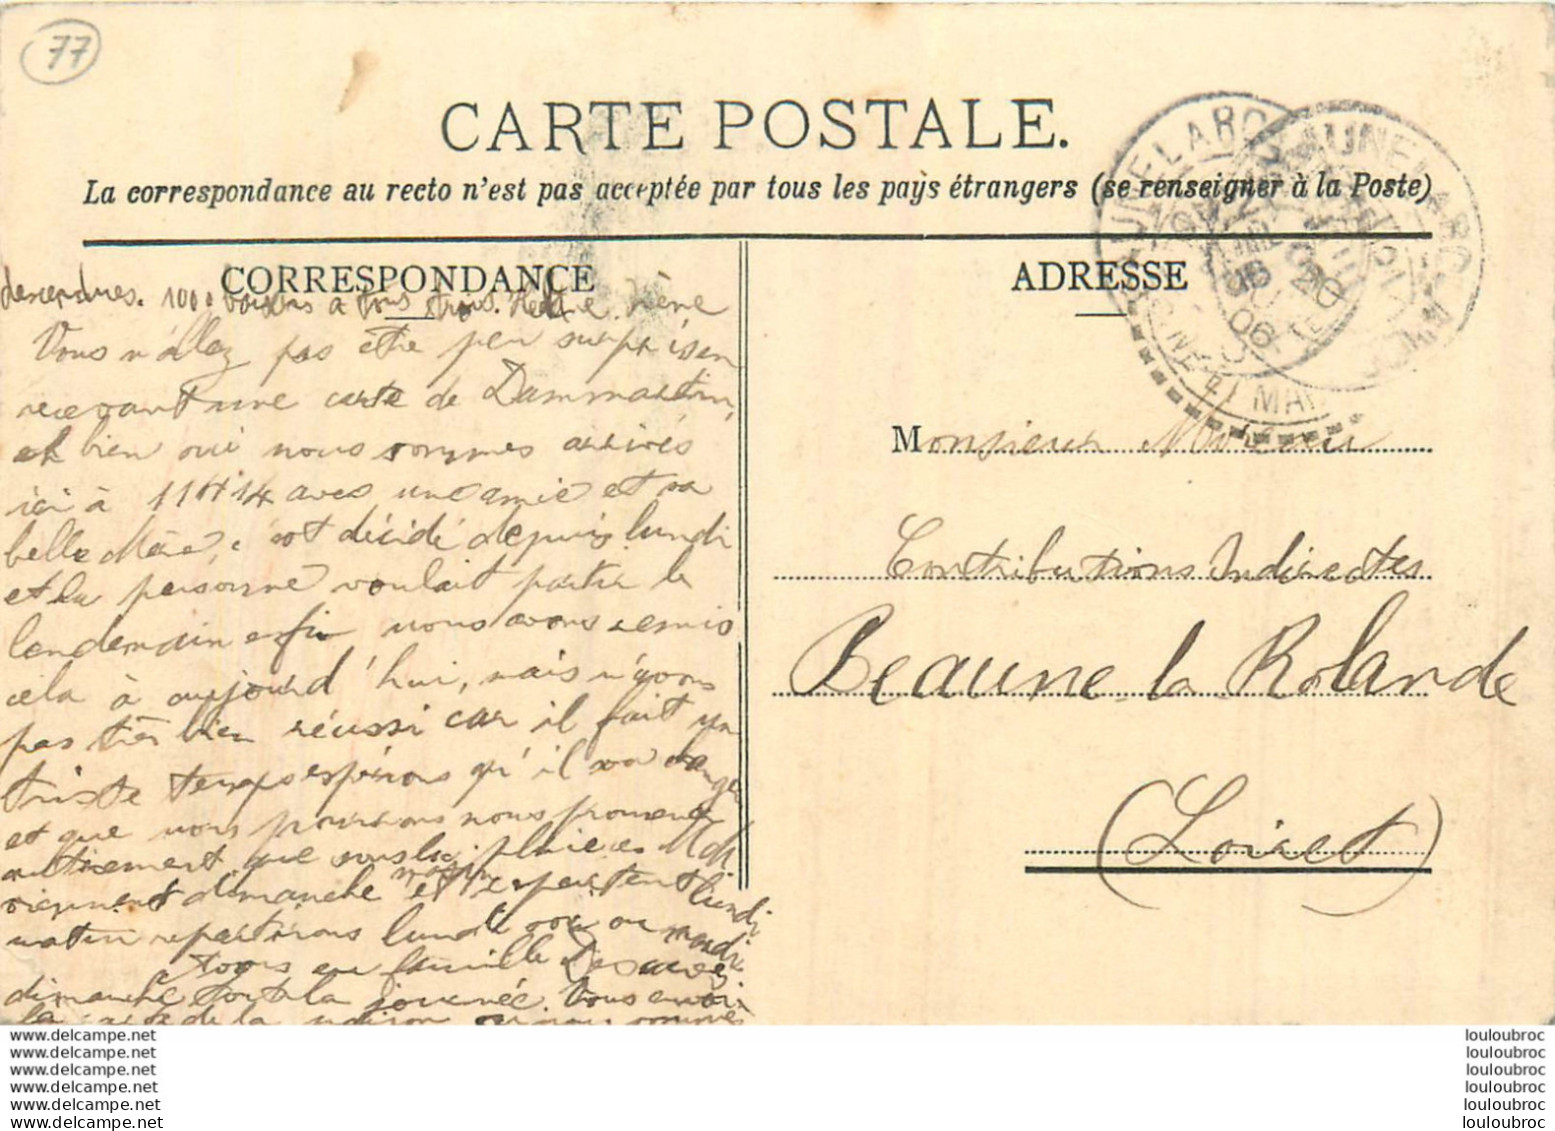 77
CARTE POSTALE.
La correspondance au recto n'est pas acceptée par tous les pays étrangers (se renseigner à la Poste)
CORRESPONDANCE
descendues. 1000 baisers à tous trois.
Vous n'allez pas être peu surpris en
recevant une carte de Dammartin,
eh bien oui nous sommes arrivés
ici à 11H14 avec une amie et sa
belle Mère, c'est décidé depuis lundi
et la personne voulait partir le
lendemain enfin nous avons remis
cela à aujourd'hui, mais n'avons
pas très bien réussi car il fait un
triste temps espérons qu'il va changer
et que nous pourrons nous promener
autrement que sous la pluie ces MM
viennent dimanche matin et repartent lundi
matin repartirons lundi soir ou mardi
en famille
dimanche toute la journée. Vous envoi
la carte de la maison où nous sommes
ADRESSE
Monsieur
Contributions Indirectes
Beaune la Rolande
(Loiret)
BEAUNE LA ROLANDE
SEINE ET MARNE
06
20
www.delcampe.net
www.delcampe.net
www.delcampe.net
www.delcampe.net
www.delcampe.net
www.delcampe.net
louloubroc
louloubroc
louloubroc
louloubroc
louloubroc
louloubroc